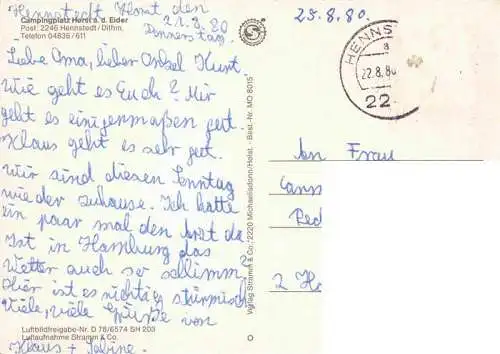 Hennstedt Horst den
21.8.80
Donnerstag
Campingplatz Horst a. d. Eider
Post: 2246 Hennstedt / Dithm.
Telefon 04836/611
Liebe Oma, lieber Onkel Kurt
Wie geht es Euch? Mir
geht es einigermaßen gut.
Klaus geht es sehr gut.
Wir sind diesen Sonntag
wieder zuhause. Ich hatte
ein paar mal den Arzt da.
Ist in Hamburg das
Wetter auch so schlimm?
Hier ist es richtig stürmisch
Viele, viele Grüße von
Klaus + Sabine.
Luftbildfreigabe-Nr. D 78/6574 SH 203
Luftaufnahme Stramm & Co.
Verlag Stramm & Co., 2220 Michaelisdonn/Holst. - Best.-Nr. MO 8015
25.8.80.
HENNS
a
22.8.80
22
An Frau
Cann
Red
2 Ha